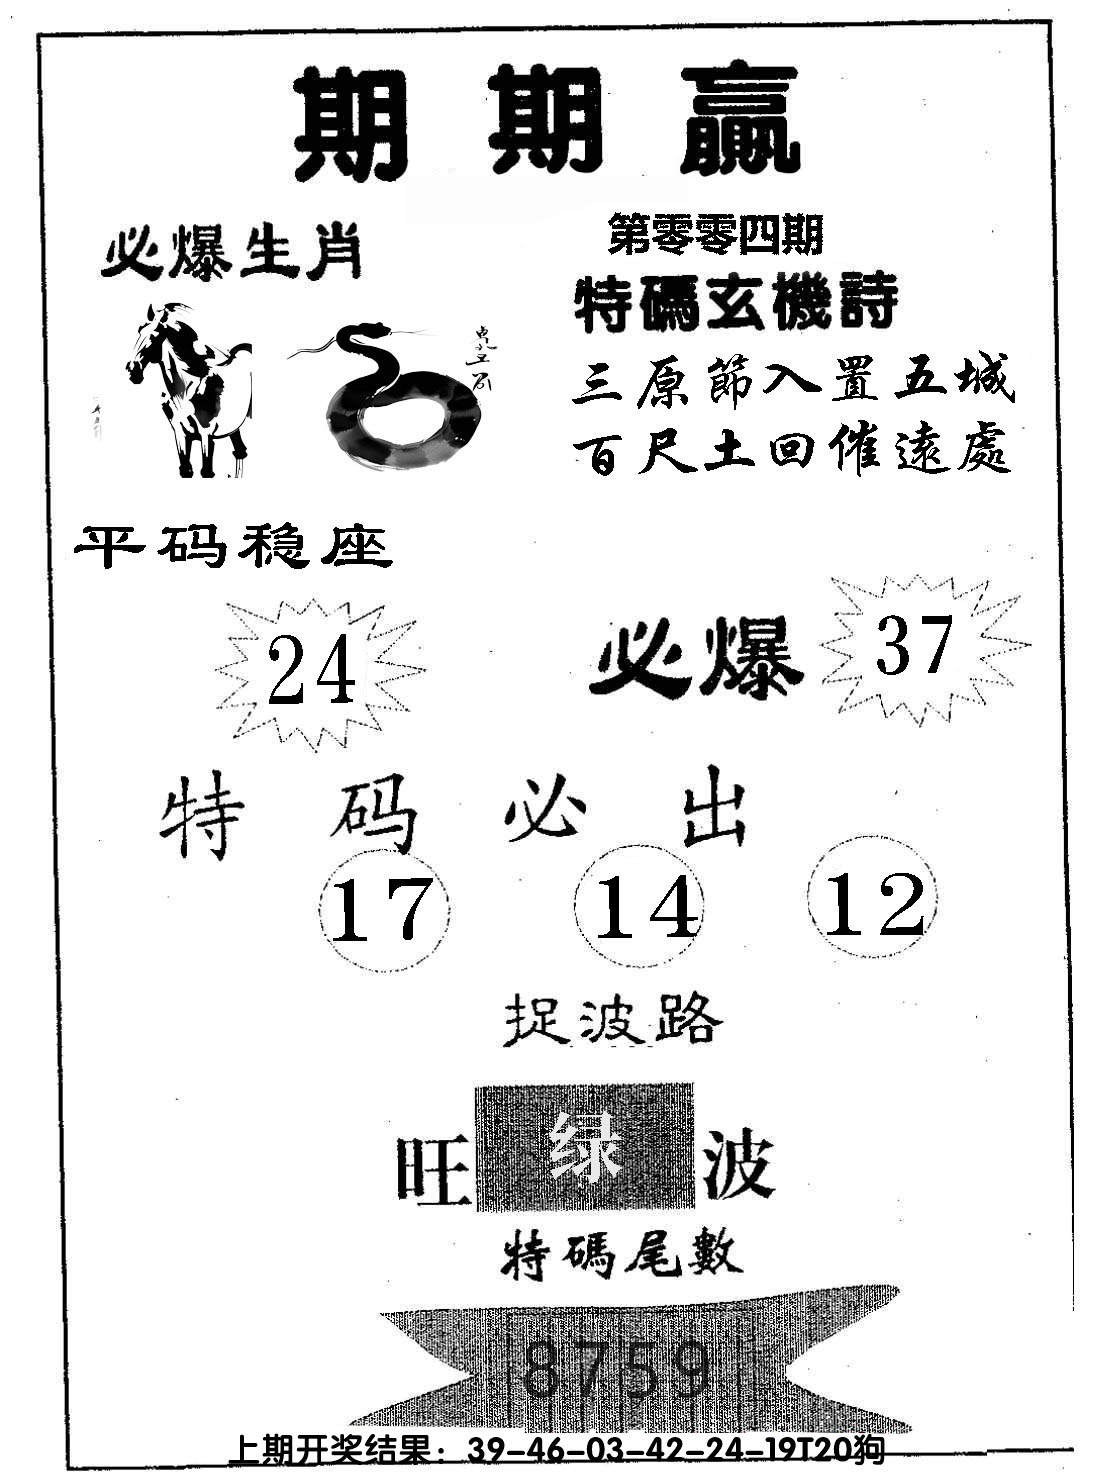 期期贏
必爆生肖
第零零四期
特碼玄機詩
三原節入置五城
百尺土回催遠處
平码稳座
24
必爆
37
特码必出
17 14 12
捉波路
旺绿波
特碼尾數
8759
上期开奖结果：39-46-03-42-24-19T20狗